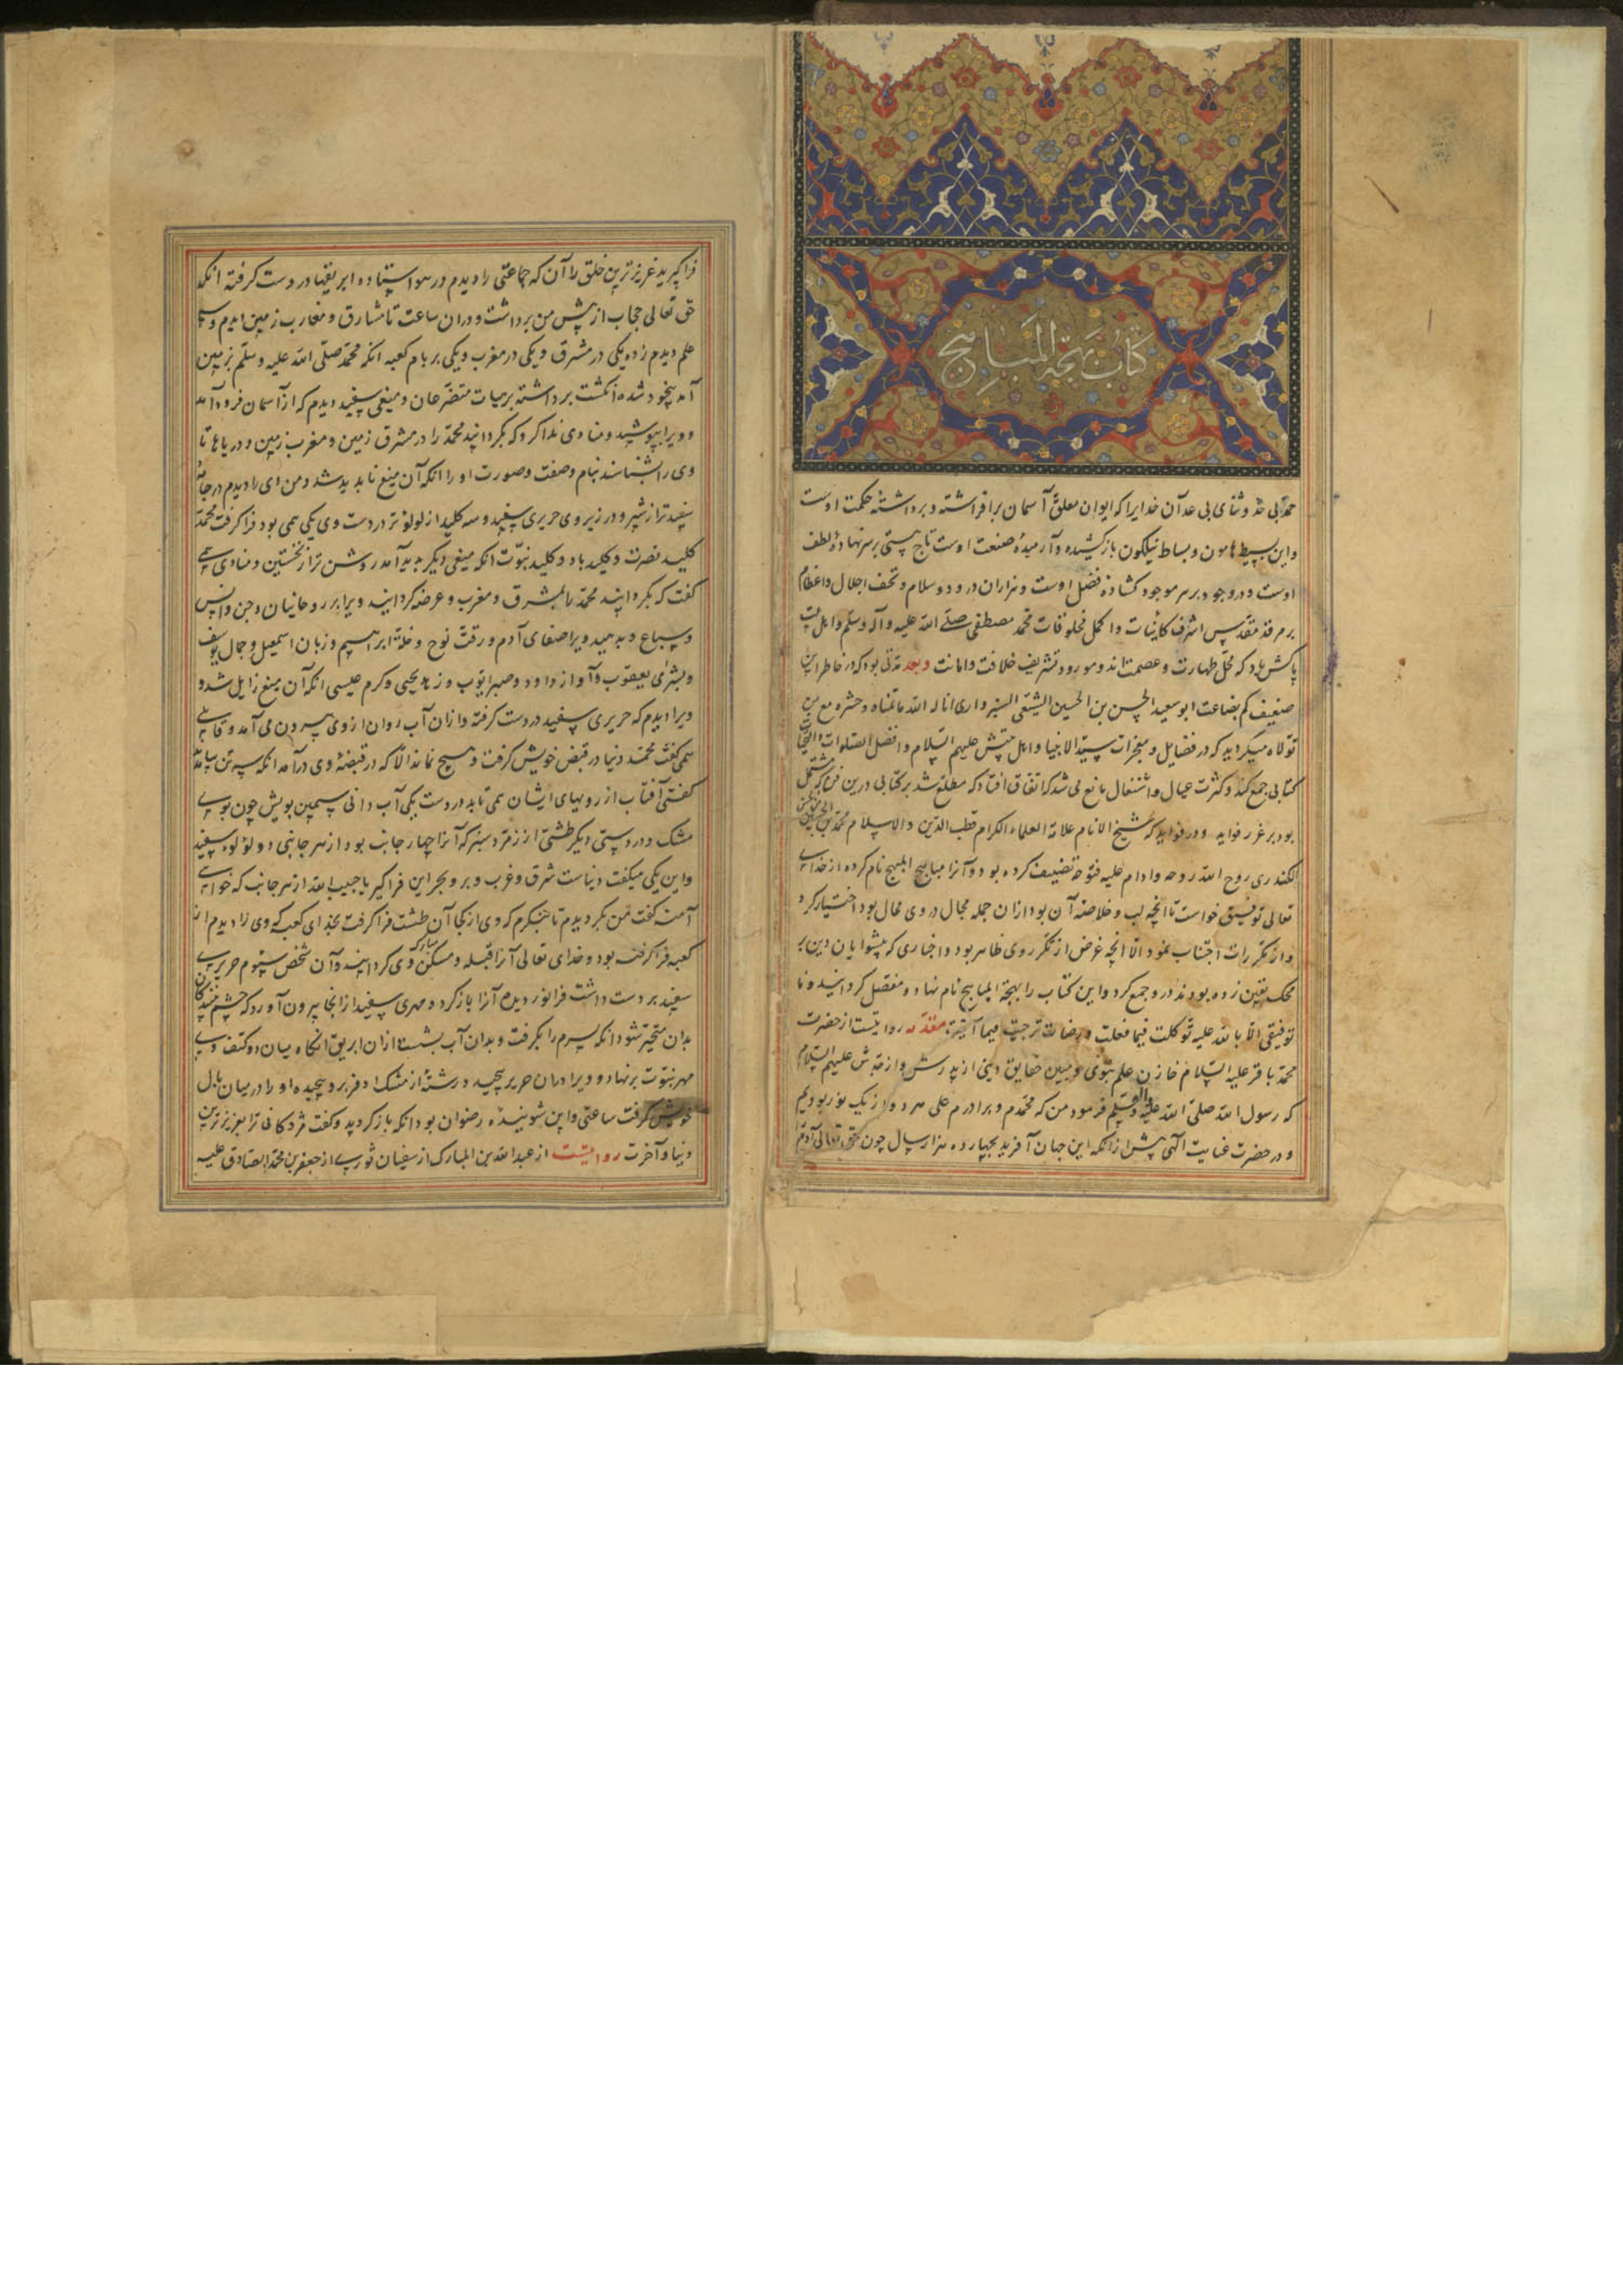 کتاب بهجة المباهج
حمد بی حد و ثنای بی عد آن خدایرا که ایوان معلق آسمان برافراشته و برداشتهٔ حکمت اوست
واین بسیط هامون و بساط نیلکون بازکشیده و آرمیدهٔ صنعت اوست تاج هستی بر سر نهادهٔ لطف
اوست و در وجود بر سر موجود کشادهٔ فضل اوست و هزاران درود و سلام و تحف اجلال و اعظام
بر مرقد مقدس اشرف کاینات و اکمل مخلوقات محمد مصطفی صلی الله علیه وآله وسلم و اهل بیت
پاکش باد که محل طهارت و عصمت اند و مورد تشریف خلافت وامانت وبعد مدتی بود که در خاطر این
ضعیف کم بضاعت ابو سعید الحسن بن الحسین الشیعی السبزواری اناله الله ما تمناه و حشره مع من
تولاه میکردید که در فضایل و معجزات سید الانبیا و اهل بیتش علیهم السلام و افضل الصلوات والتحیات
کتابی جمع کند و کثرت عیال و اشتغال مانع می شد که اتفاق افتاد که مطلع شد بر کتابی درین فن که مشتمل
بود بر غرر فواید و درر فواید که شیخ الانام علامة العلماء الکرام قطب الدین والاسلام محمد بن الحسین بن الحسن
الکندری روح الله روحه و ادام علیه فتوحه تصنیف کرده بود و آنرا مباهج المهج نام کرده از خدای
تعالی توفیق خواست تا انچه لب و خلاصهٔ آن بود ازان جمله مجال در وی محال بود اختیار کرد
و از مکررات اجتناب نمود الا انچه غرض از تکرر وی ظاهر بود و اخباری که پیشوایان دین بر
محک یقین زده بودند در و جمع کرد و این کتاب را بهجة المباهج نام نهاد و مفصل کردانید و ما
توفیقی الا بالله علیه توکلت فیما فعلت و رضاه ترجیت فیما آتیته مقدمه روایتست از حضرت
محمد باقر علیه السلام خازن علم نبوی و مبین حقایق دینی از پدرش و از جدش علیهم السلام
که رسول الله صلی الله علیه وآله وسلم فرمود من که محمدم و برادرم علی هر دو از یک نور بودیم
و در حضرت عنایت الهی پیش ازانکه این جهان آفرید بچهارده هزار سال چون حق تعالی آدم
فراکیرید عزیزترین خلق را آن که جماعتی را دیدم در هوا ایستاده ابریقها در دست کرفته انکه
حق تعالی حجاب از پیش من برداشت و دران ساعت تا مشارق و مغارب زمین بدیدم و سه
علم دیدم زده یکی در مشرق و یکی در مغرب و یکی بر بام کعبه انکه محمد صلی الله علیه وسلم بزمین
آمد بسجود شده انکشت برداشته برهیات متضرعان و میغی سفید دیدم که از آسمان فرود آمد
و ویرا بپوشید و منادی ندا کرد که بکردانید محمد را در مشرق زمین و مغرب زمین و دریاها تا
وی را بشناسند بنام و صفت و صورت او را انکه آن میغ نابدید شد و من وی را دیدم در جامهٔ
سفیدتر از شیر و در زیر وی حریری سفید و سه کلید از لولو تر در دست وی یکی همی بود فراکرفت محمد
کلید نصرت و کلید باد و کلید نبوت انکه میغی دیکر بدید آمد روشن تر از نخستین و منادی همی
کفت که بکردانید محمد را بمشرق و مغرب و عرضه کردانید ویرا بر روحانیان و جن و انس
و سباع و بدهید ویرا صفای آدم و رقت نوح و خلة ابراهیم و زبان اسمعیل و جمال یوسف
و بشرای یعقوب و آواز داود و صبر ایوب و زهد یحیی و کرم عیسی انکه آن میغ زایل شد و
ویرا دیدم که حریری سفید در دست کرفته و ازان آب روان از وی بیرون می آمد و قایلی
همی کفت محمد دنیا در قبض خویش کرفت و هیچ نماند الا که در قبضهٔ وی درآمد انکه سه تن بیامدند
کفتی آفتاب از رویهای ایشان همی تابد در دست یکی آب دانی سیمین بویش چون بوی
مشک و در دستی دیکر طشتی از زمرد سبز که آنرا چهار جانب بود از هر جانبی دو لولوء سفید
و این یکی میکفت دنیاست شرق و غرب و بر و بحر این فراکیر یا حبیب الله از هر جانب که خواهی
آمنه کفت من بکردیدم تا بنکرم که وی از کجا آن طشت فراکرفت بخدای کعبه که وی را دیدم از
کعبه فراکرفته بود و خدای تعالی آنرا قبله و مسکن مبارک وی کردانید و آن شخص سیوم حریری
سفید بر دست داشت فرانوردیده آنرا باز کرد و مهری سفید از انجا بیرون آورد که چشم بینندکان
بدان متحیر شود انکه پسرم را بکرفت و بدان آب بشست ازان ابریق انکاه میان دو کتف وی
مهر نبوت برنهاد و ویرا دران حریر پیچید و رشتهٔ از مشک اذفر برو پیچیده او را در میان بال
خویش کرفت ساعتی و این شوینده رضوان بود انکه باز کردید و کفت مژدکانی ترا بعزیزترین
دنیا و آخرت روایتست از عبدالله بن المبارک از سفیان ثوری از جعفر بن محمد الصادق علیه